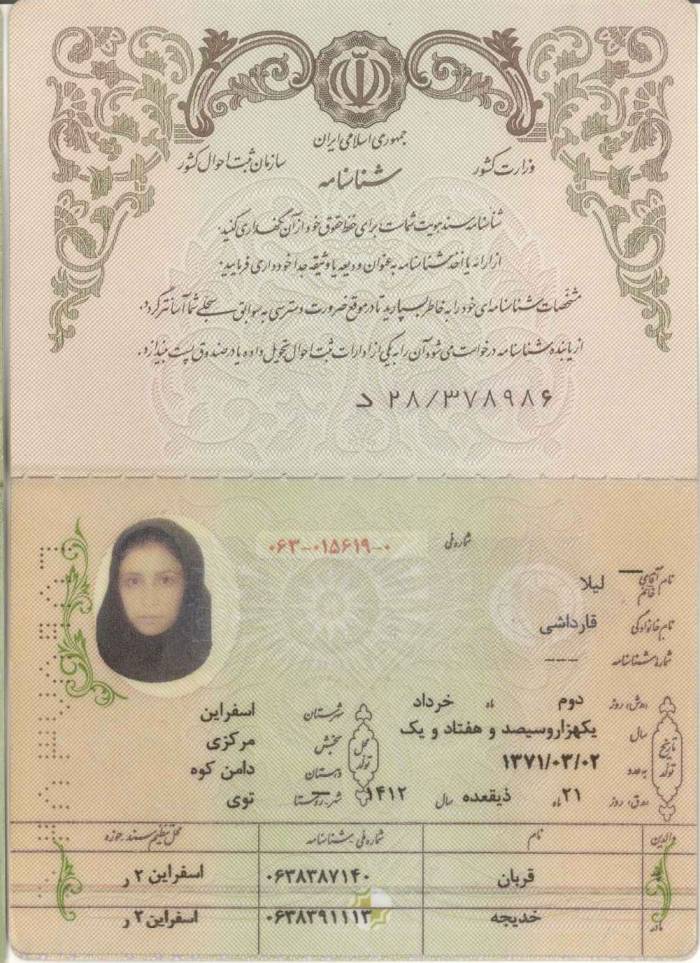 جمهوری اسلامی ایران
وزارت کشور
سازمان ثبت احوال کشور
شناسنامه
شناسنامه سند هویت شماست، برای حفظ حقوق خود از آن نگهداری کنید.
از ارائه یا اخذ شناسنامه به عنوان ودیعه یا وثیقه جداً خودداری فرمایید.
مشخصات شناسنامه‌ای خود را به خاطر بسپارید تا در موقع ضرورت دسترسی به سوابق سجلی شما آسانتر گردد.
از یابنده شناسنامه درخواست می‌شود آن را به یکی از ادارات ثبت احوال تحویل داده یا در صندوق پست بیندازد.
د ۲۸/۳۷۸۹۸۶
شماره ملی ۰۶۳-۰۱۵۶۱۹-۰
نام آقای خانم لیلا
نام خانوادگی قارداشی
شماره شناسنامه ---
تاریخ تولد
روز دوم ماه خرداد
سال یکهزاروسیصد و هفتاد و یک
به عدد ۱۳۷۱/۰۳/۰۲
روز ۲۱ ماه ذیقعده سال ۱۴۱۲
محل تولد
شهرستان اسفراین
بخش مرکزی
دهستان دامن کوه
شهر-روستا توی
والدین نام شماره ملی شناسنامه محل تنظیم سند حوزه
قربان ۰۶۳۸۳۸۷۱۴۰ اسفراین ۲ ر
مادر خدیجه ۰۶۳۸۳۹۱۱۱۳ اسفراین ۲ ر